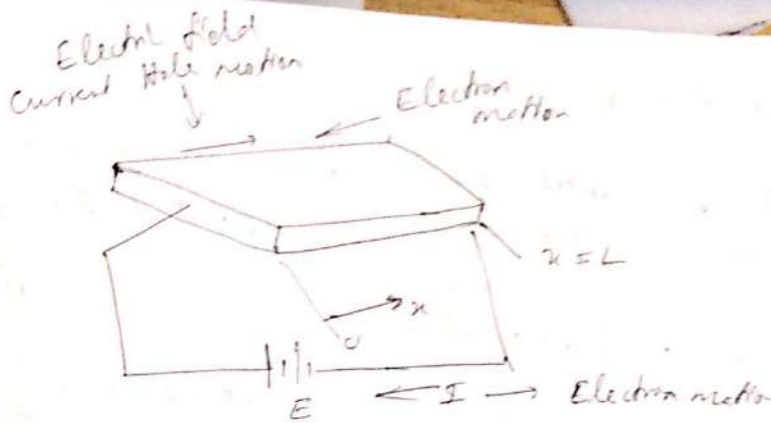 Electric field
Current Hole motion
Electron
motion
x = L
x
0
E
I
Electron motion